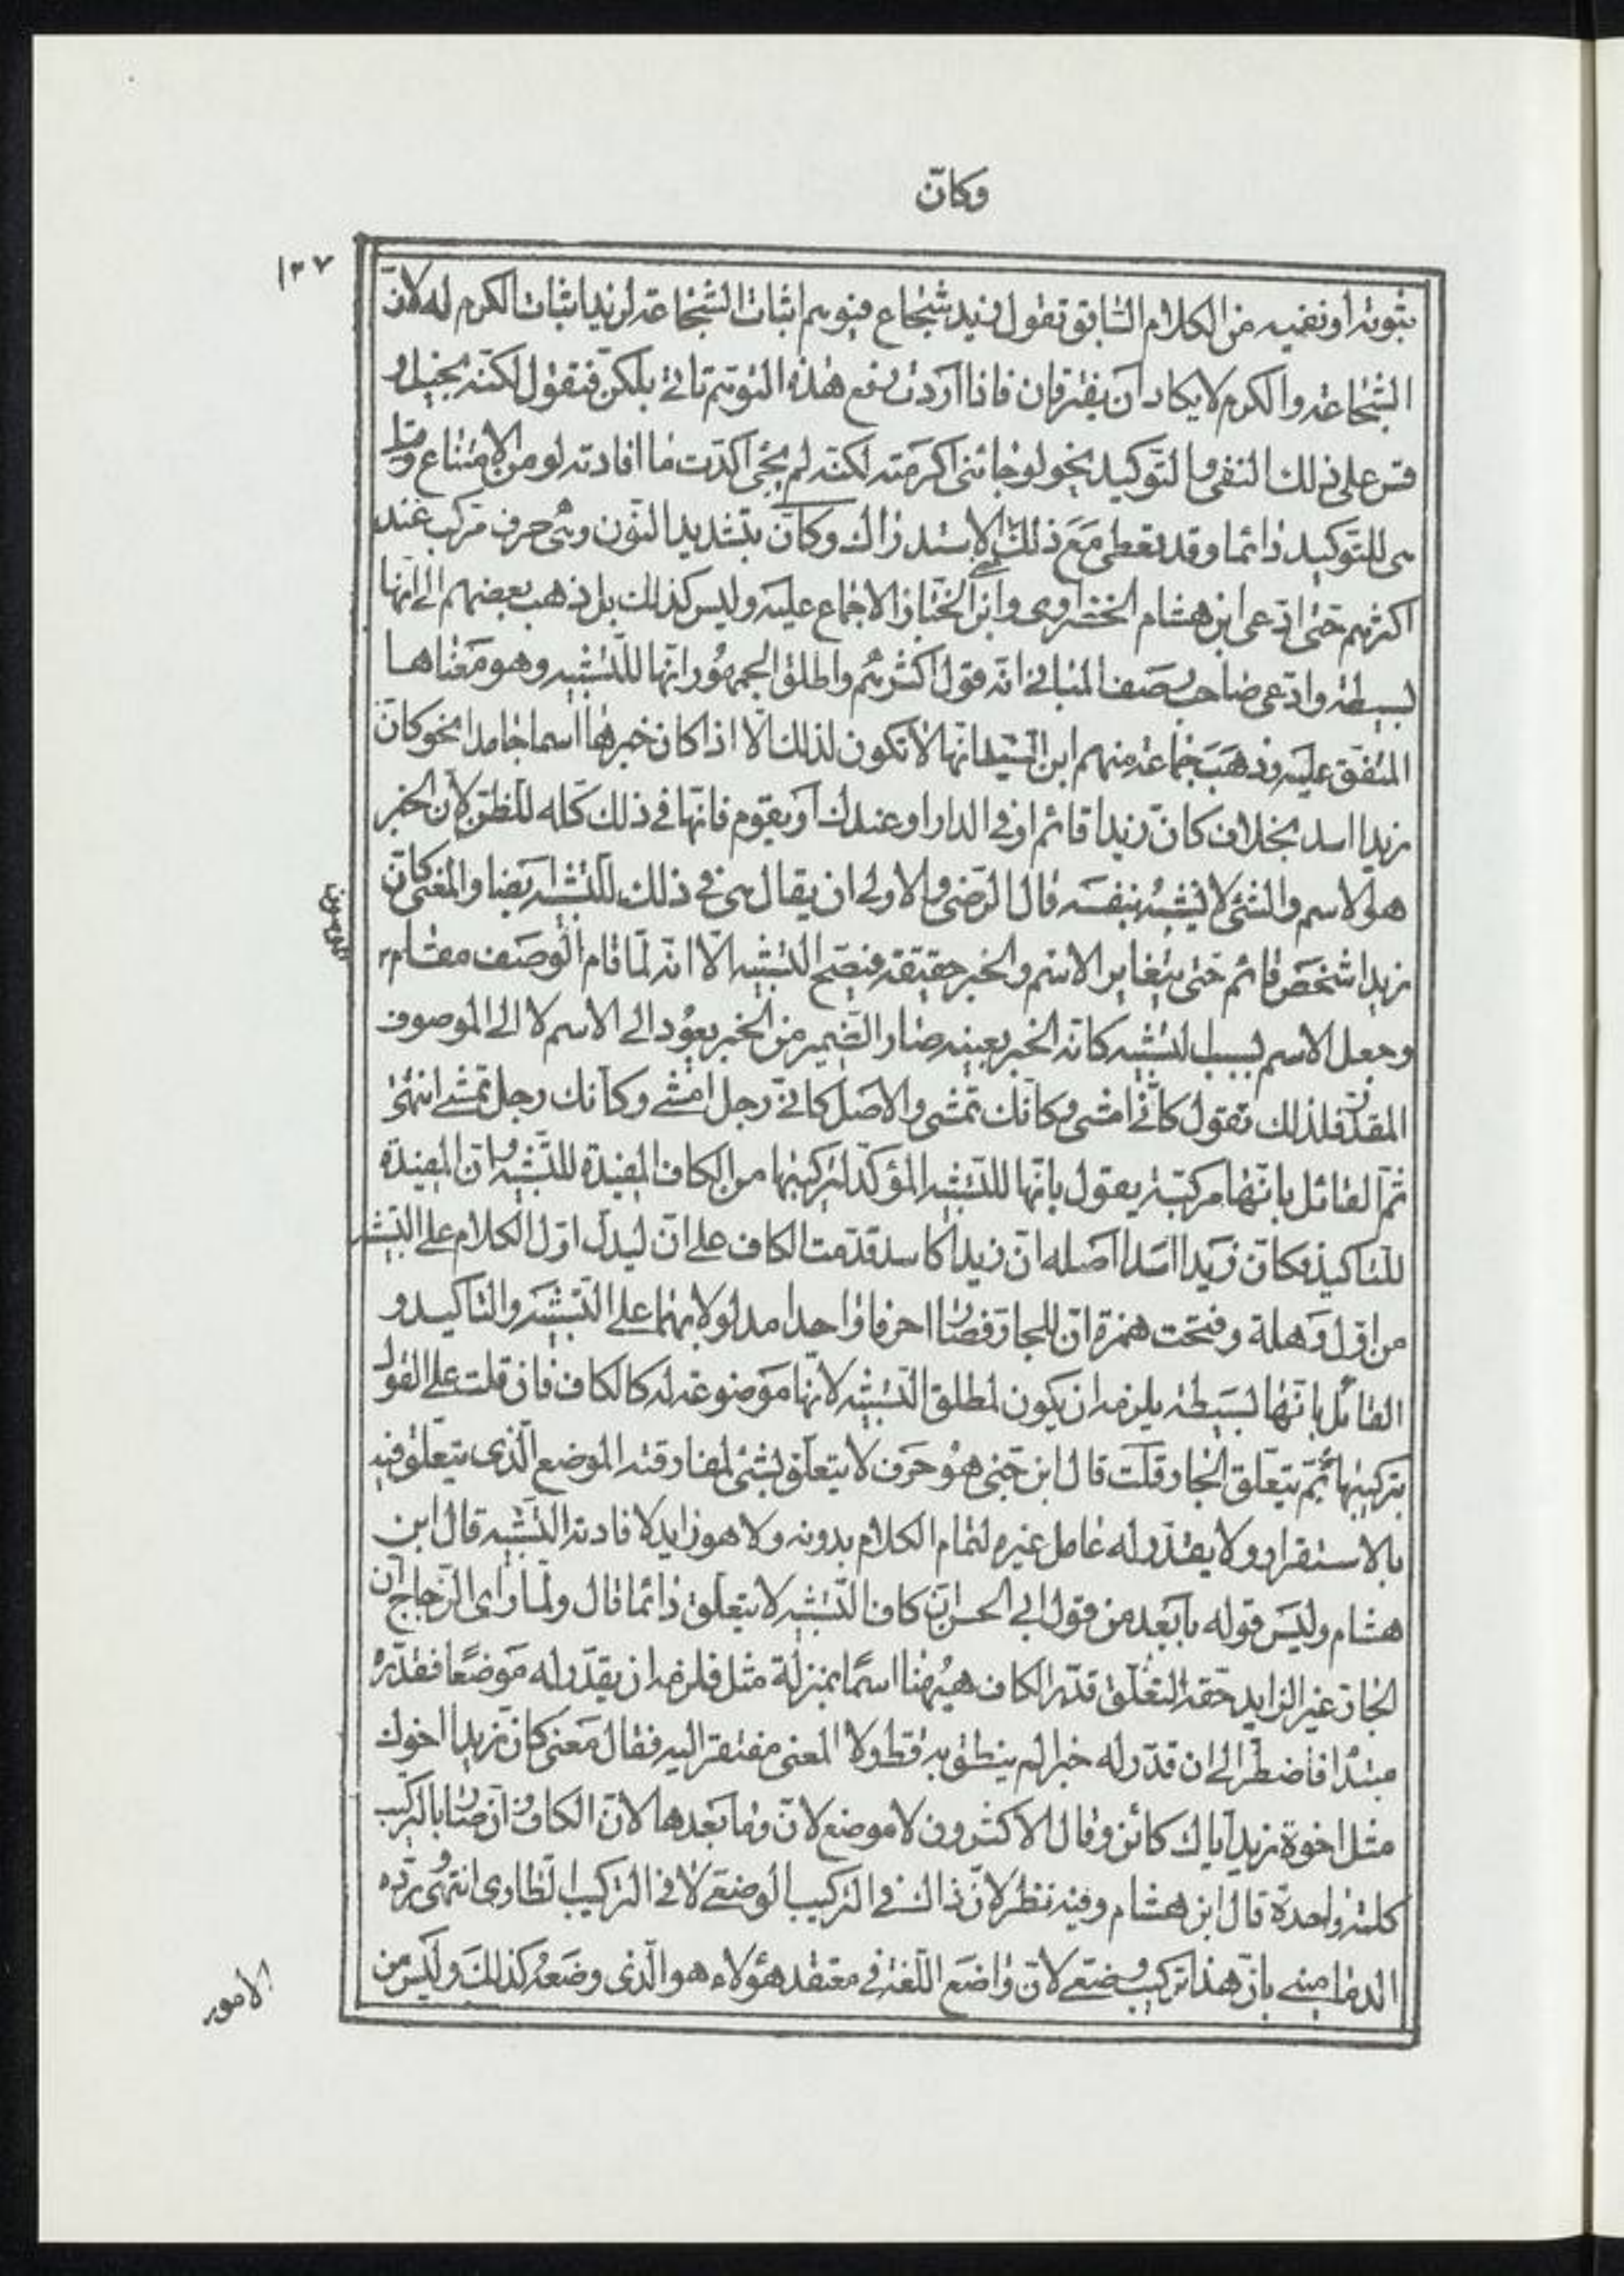 وكانّ
١٣٧
بثبوته او نفيه من الكلام السّابق تقول زيد شجاع فيوهم اثبات الشّجاعة لزيد اثبات الكرم له لانّ
الشّجاعة والكرم لا يكادان يفترقان فاذا اردت رفع هذه التّوهّم تاتي بلكنّ فتقول لكنّه بخيل و
قس على ذلك النفى والتّوكيد نحو لو جائنى اكرمته لكنّه لم يجئ اكدّت ما افادته لو من الامتناع وقيل
هى للتّوكيد دائما وقد تعطى مع ذلك الاستدراك وكانّ بتشديد النّون وهى حرف مركّب عند
اكثرهم حتّى ادّعى ابن هشام الخضراوى وابن الخبّاز الاجماع عليه وليس كذلك بل ذهب بعضهم الى انّها
بسيطة وادّعى صاحب رصف المبانى انّه قول اكثرهم واطلق الجمهور انّها للتّشبيه وهو معناها
المتّفق عليه وذهب جماعة منهم ابن السّيد انّها لا تكون لذلك الّا اذا كان خبرها اسما جامدا نحو كانّ
زيدا اسد بخلاف كانّ زيدا قائم او فى الدار او عندك او يقوم فانّها فى ذلك كلّه للظنّ لانّ الخبر
هو الاسم والشئ لا يشبه بنفسه قال الرّضى والاولى ان يقال هى فى ذلك للتّشبيه ايضا والمعنى كانّ
زيدا شخص قائم حتى يتغاير الاسم والخبر حقيقة فيصحّ التشبيه الّا انّه لمّا قام الوصف مقام
وجعل الاسم بسبب التشبيه كانّه الخبر بعينه صار الضّمير من الخبر يعود الى الاسم لا الى الموصوف
المقدّر فلذلك تقول كانّى امشى وكانّك تمشى والاصل كانّى رجل امشى وكانّك رجل تمشى انتهى
ثمّ القائل بانّها مركّبة يقول بانّها للتّشبيه المؤكّد لتركيبها من الكاف المفيدة للتّشبيه وانّ المفيدة
للتاكيد فكانّ زيدا اسد اصله انّ زيدا كاسد قدّمت الكاف على انّ ليدلّ اوّل الكلام على التّشبيه
من اوّل وهلة وفتحت همزة انّ للجارّ فصارا حرفا واحدا مدلولا بهما على التّشبيه والتاكيد و
القائل بانّها بسيطة يلزمه ان يكون لمطلق التّشبيه لانّها موضوعة له كالكاف فان قلت على القول
بتركيبها ثمّ بم يتعلّق الجار قلت قال ابن جنى هو حرف لا يتعلّق بشئ لمفارقته الموضع الّذى يتعلّق فيه
بالاستقرار ولا يقدّر له عامل غيره لتمام الكلام بدونه ولا هو زايد لافادته التّشبيه قال ابن
هشام وليس قوله بابعد من قول ابى الحسن انّ كاف التّشبيه لا يتعلّق دائما قال ولمّا راى الزّجاج انّ
الجارّ غير الزايد حقّه التعلّق قدّر الكاف هيهنا اسمًا بمنزلة مثل فلزمه ان يقدّر له موضعًا فقدّره
مبتدا فاضطرّ الى ان قدّر له خبرا لم ينطق به قط ولا المعنى مفتقر اليه فقال معنى كانّ زيدا اخوك
مثل اخوة زيد اياك كائن وقال الاكثرون لا موضع لانّ وما بعدها لانّ الكاف وانّ صارا بالتركيب
كلمة واحدة قال ابن هشام وفيه نظر لانّ ذاك فى التركيب الوضعى لا فى التركيب الطارى انتهى وردّه
الدمامينى بانّ هذا تركيب وضعى لانّ واضع اللّغة فى معتقد هؤلاء هو الّذى وضعه كذلك وليس من
الامور